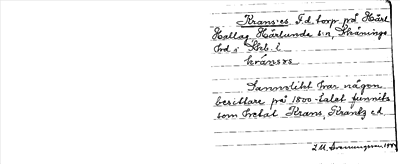 Krans·es F.d. torp på Härl
Hallag Härlunde sn, Skånings
hd i Skb. l
kránsəs
Sannolikt har någon
besittare på 1800-talet funnits
som hetat Krans, Krantz el.